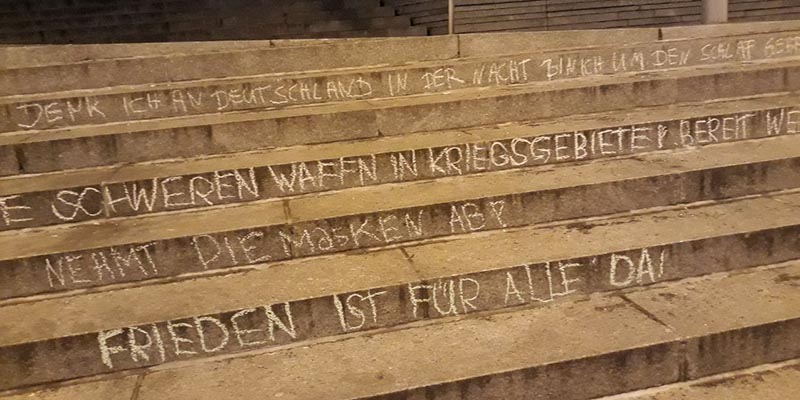 DENK ICH AN DEUTSCHLAND IN DER NACHT BIN ICH UM DEN SCHLAF
SCHWEREN WAFFN IN KRIEGSGEBIETE BEREIT
NEHMT DIE MASKEN AB!
FRIEDEN IST FÜR ALLE DA!